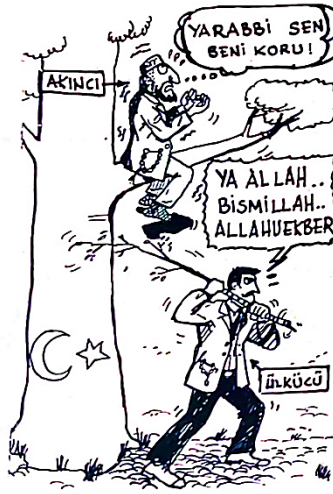 YARABBİ SEN
BENİ KORU!
AKINCI
YA ALLAH..
BİSMİLLAH..
ALLAHUEKBER
ÜLKÜCÜ